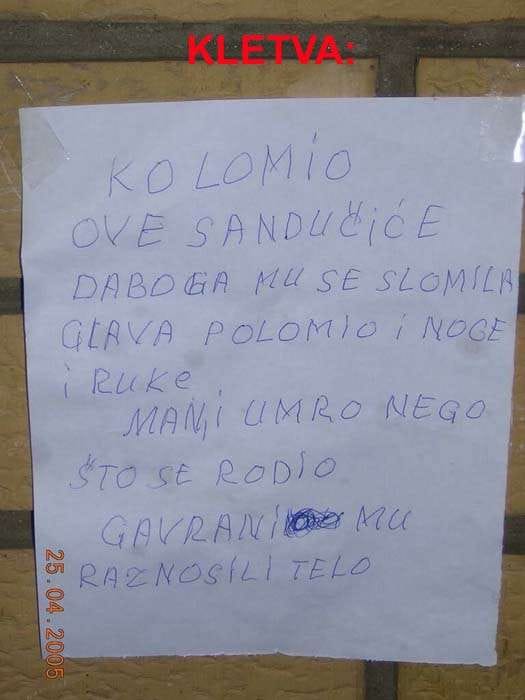 KLETVA:
KO LOMIO
OVE SANDUČIĆE
DABOGA MU SE SLOMILA
GLAVA POLOMIO I NOGE
i RUKE
MANJI UMRO NEGO
ŠTO SE RODIO
GAVRANI MU
RAZNOSILI TELO
25.04.2005